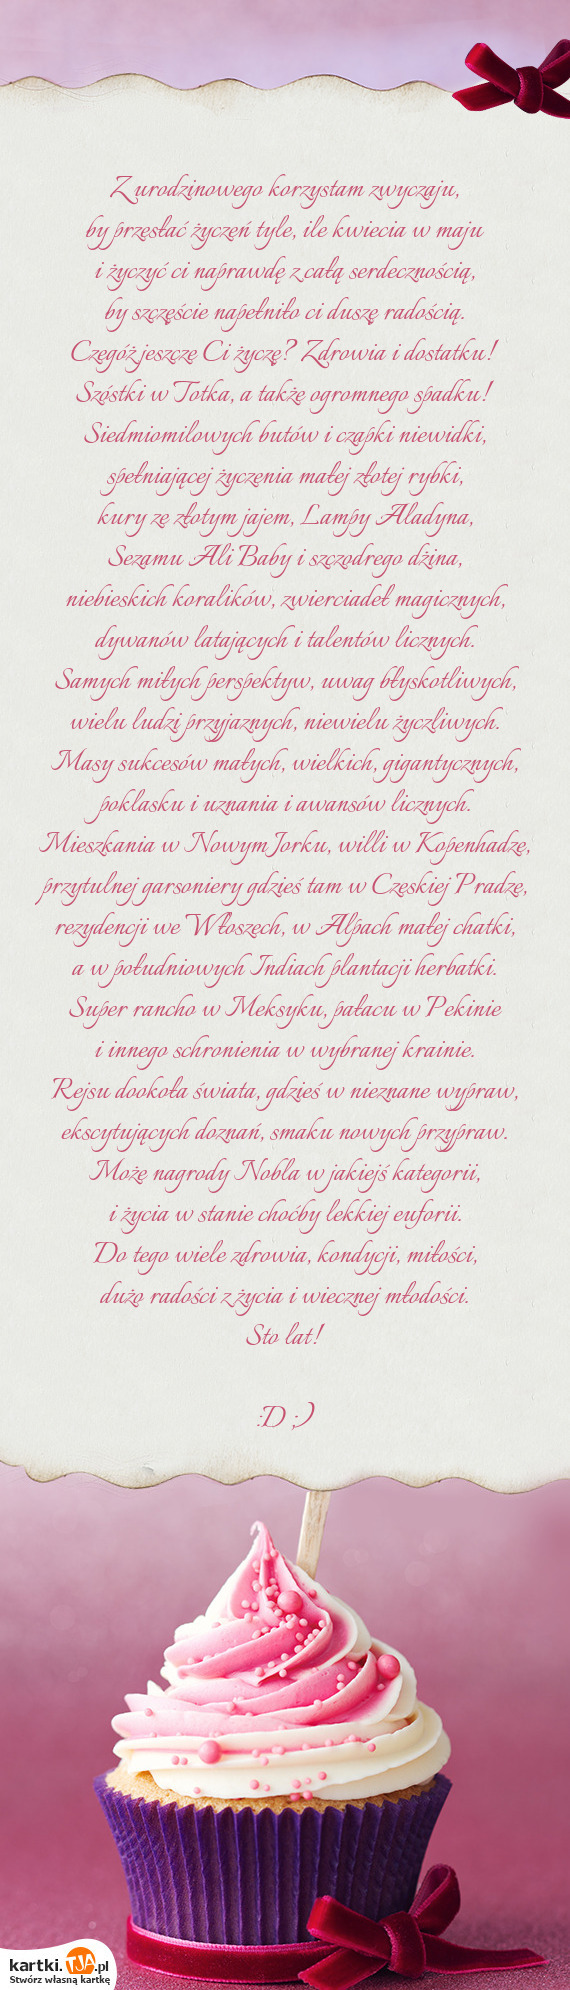 Z urodzinowego korzystam zwyczaju,
by przesłać życzeń tyle, ile kwiecia w maju
i życzyć ci naprawdę z całą serdecznością,
by szczęście napełniło ci duszę radością.
Czegóż jeszcze Ci życzę? Zdrowia i dostatku!
Szóstki w Totka, a także ogromnego spadku!
Siedmiomilowych butów i czapki niewidki,
spełniającej życzenia małej złotej rybki,
kury ze złotym jajem, Lampy Aladyna,
Sezamu Ali Baby i szczodrego dżina,
niebieskich koralików, zwierciadeł magicznych,
dywanów latających i talentów licznych.
Samych miłych perspektyw, uwag błyskotliwych,
wielu ludzi przyjaznych, niewielu życzliwych.
Masy sukcesów małych, wielkich, gigantycznych,
poklasku i uznania i awansów licznych.
Mieszkania w Nowym Jorku, willi w Kopenhadze,
przytulnej garsoniery gdzieś tam w Czeskiej Pradze,
rezydencji we Włoszech, w Alpach małej chatki,
a w południowych Indiach plantacji herbatki.
Super rancho w Meksyku, pałacu w Pekinie
i innego schronienia w wybranej krainie.
Rejsu dookoła świata, gdzieś w nieznane wypraw,
ekscytujących doznań, smaku nowych przypraw.
Może nagrody Nobla w jakiejś kategorii,
i życia w stanie choćby lekkiej euforii.
Do tego wiele zdrowia, kondycji, miłości,
dużo radości z życia i wiecznej młodości.
Sto lat!
:D ;)
kartki.TJA.pl
Stwórz własną kartkę